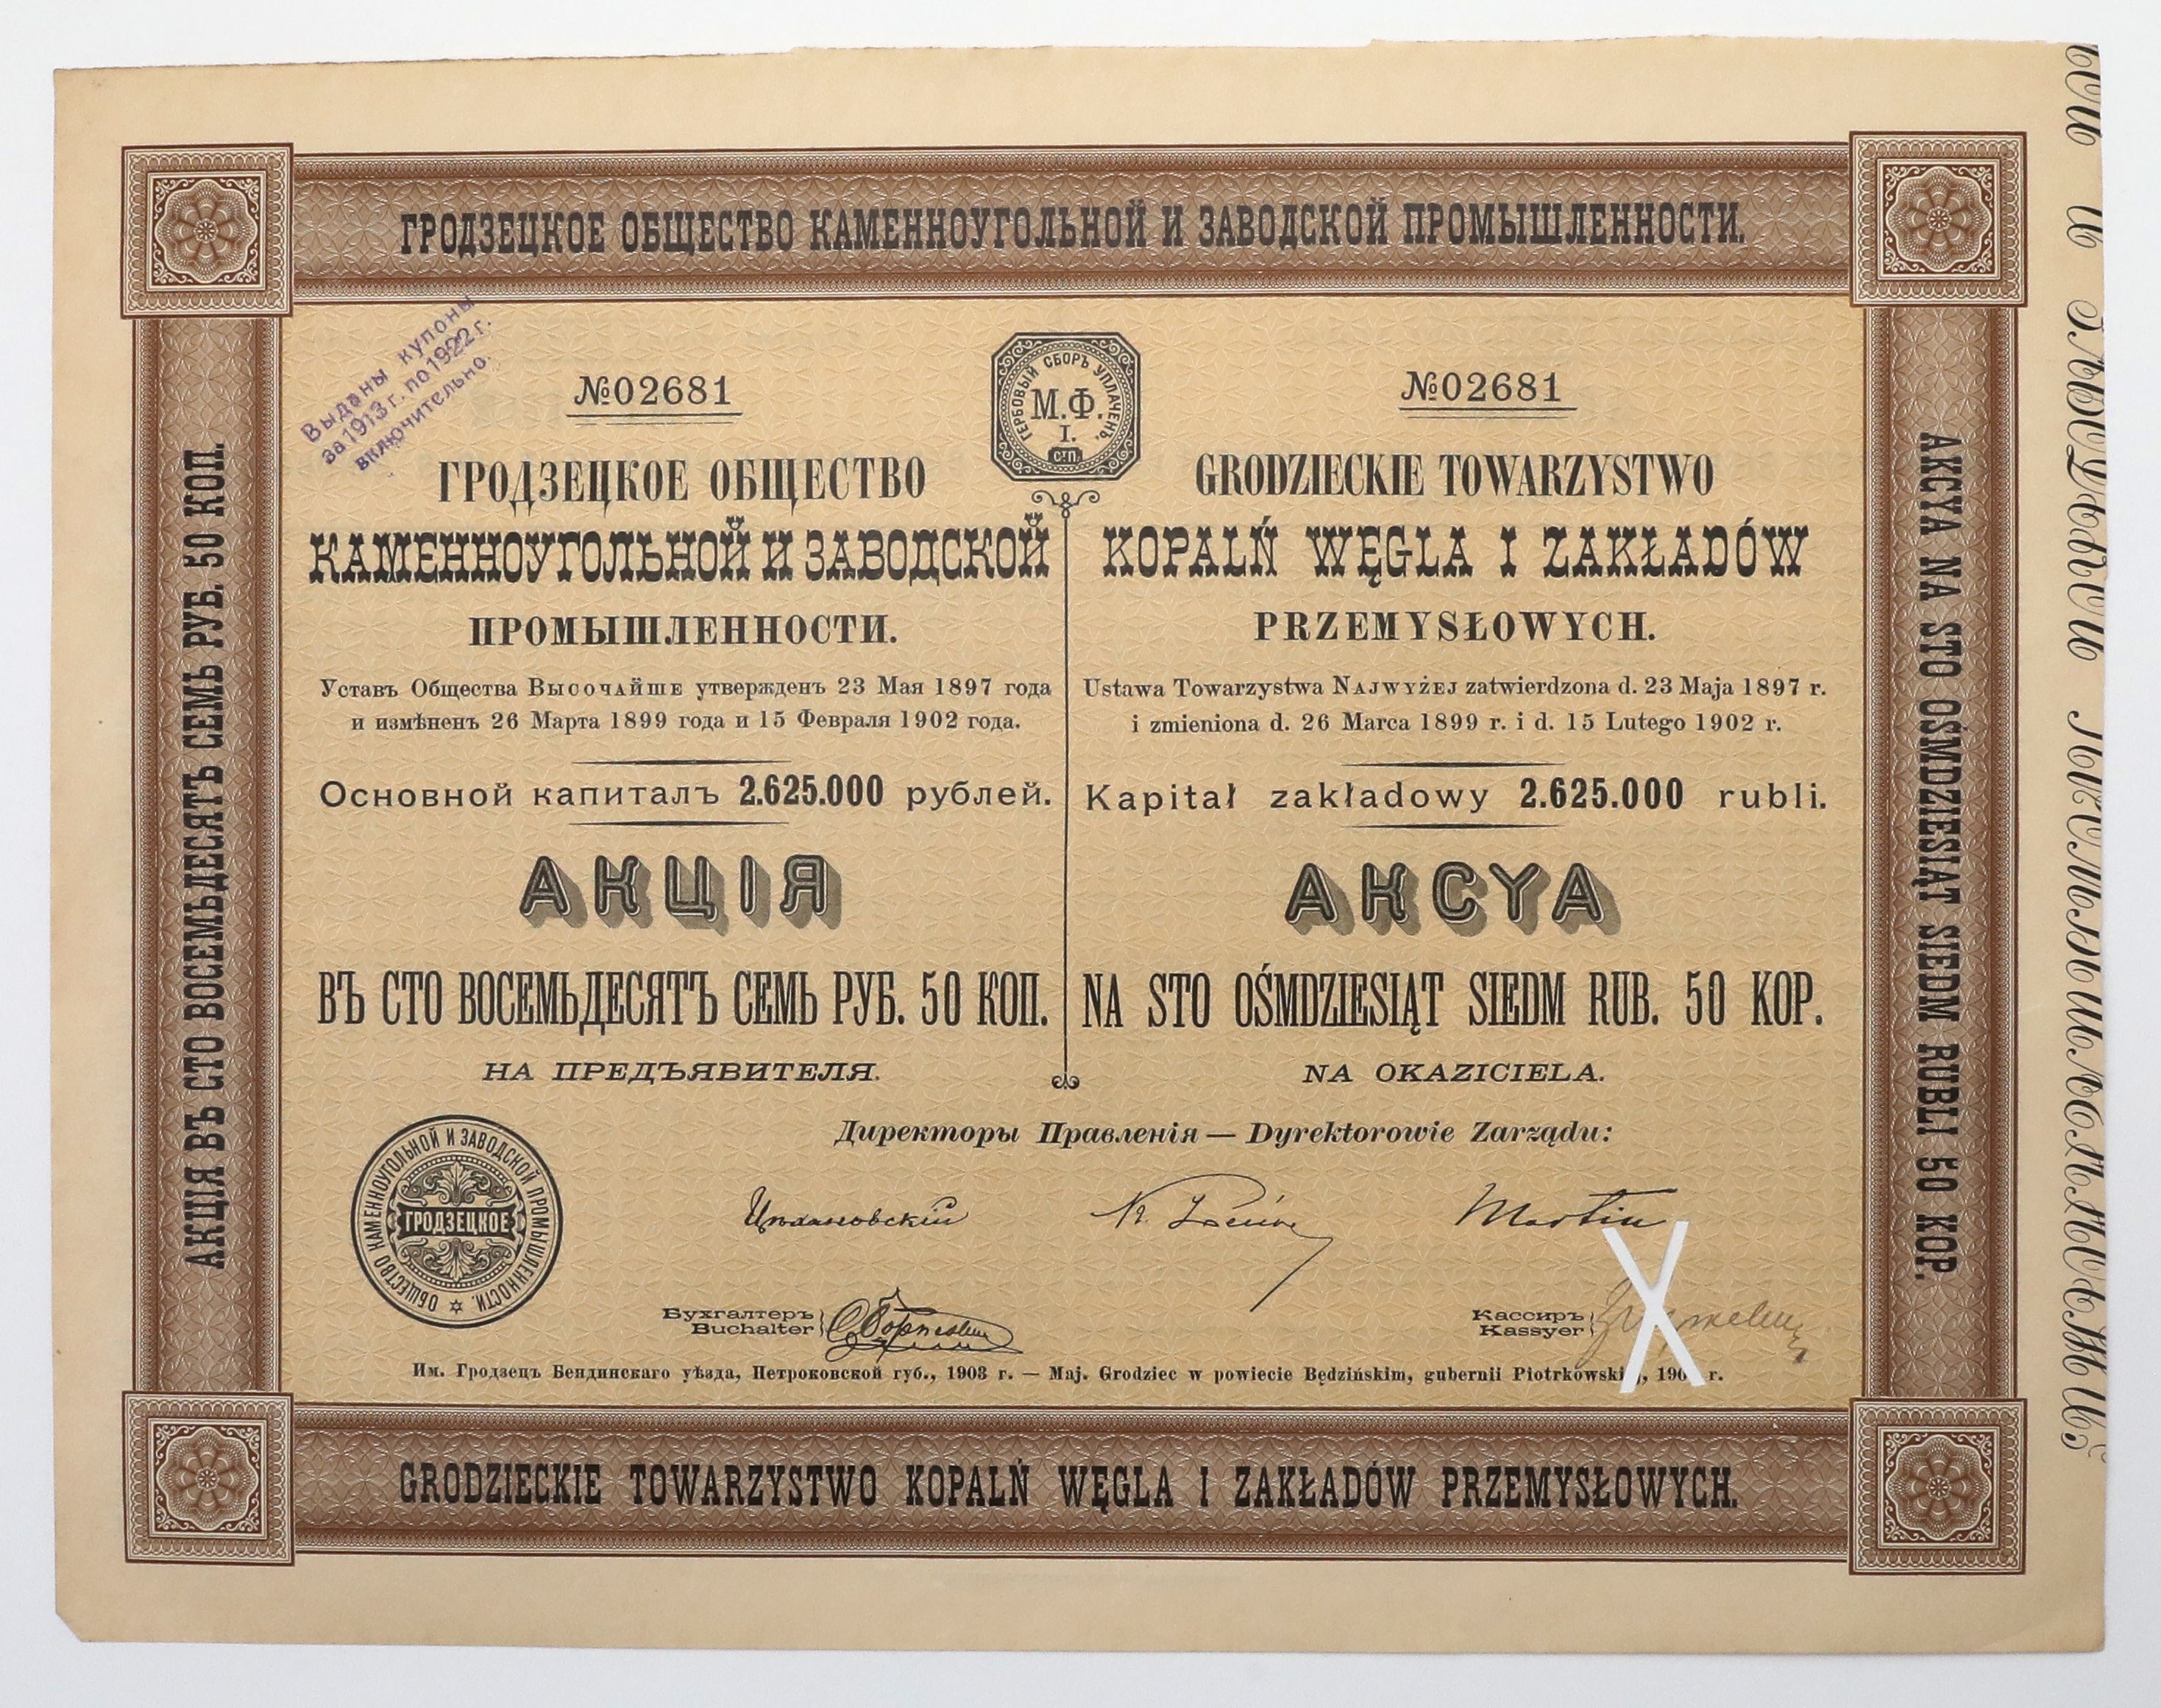 ГРОДЗЕЦКОЕ ОБЩЕСТВО КАМЕННОУГОЛЬНОЙ И ЗАВОДСКОЙ ПРОМЫШЛЕННОСТИ.
Выданы купоны
за 1913 г. по 1922 г.
включительно.
№02681
ГРОДЗЕЦКОЕ ОБЩЕСТВО
КАМЕННОУГОЛЬНОЙ И ЗАВОДСКОЙ
ПРОМЫШЛЕННОСТИ.
Уставъ Общества Высочайше утвержденъ 23 Мая 1897 года
и измѣненъ 26 Марта 1899 года и 15 Февраля 1902 года.
Основной капиталъ 2.625.000 рублей.
АКЦІЯ
ВЪ СТО ВОСЕМЬДЕСЯТЪ СЕМЬ РУБ. 50 КОП.
НА ПРЕДЪЯВИТЕЛЯ.
ГЕРБОВЫЙ СБОРЪ УПЛАЧЕНЪ.
М.Ф.
I.
С.П.
№02681
GRODZIECKIE TOWARZYSTWO
KOPALŃ WĘGLA I ZAKŁADÓW
PRZEMYSŁOWYCH.
Ustawa Towarzystwa Najwyżej zatwierdzona d. 23 Maja 1897 r.
i zmieniona d. 26 Marca 1899 r. i d. 15 Lutego 1902 r.
Kapitał zakładowy 2.625.000 rubli.
AKCYA
NA STO OŚMDZIESIĄT SIEDM RUB. 50 KOP.
NA OKAZICIELA.
Директоры Правленія — Dyrektorowie Zarządu:
Цѣхановскій
Martin
ГРОДЗЕЦКОЕ
ОБЩЕСТВО КАМЕННОУГОЛЬНОЙ И ЗАВОДСКОЙ ПРОМЫШЛЕННОСТИ.
Бухгалтеръ
Buchalter
Кассиръ
Kassyer
Им. Гродзецъ Бендинскаго уѣзда, Петроковской губ., 1903 г. — Maj. Grodziec w powiecie Będzińskim, gubernii Piotrkowski , 190 г.
GRODZIECKIE TOWARZYSTWO KOPALŃ WĘGLA I ZAKŁADÓW PRZEMYSŁOWYCH.
АКЦІЯ ВЪ СТО ВОСЕМЬДЕСЯТЪ СЕМЬ РУБ. 50 КОП.
AKCYA NA STO OŚMDZIESIĄT SIEDM RUBLI 50 KOP.